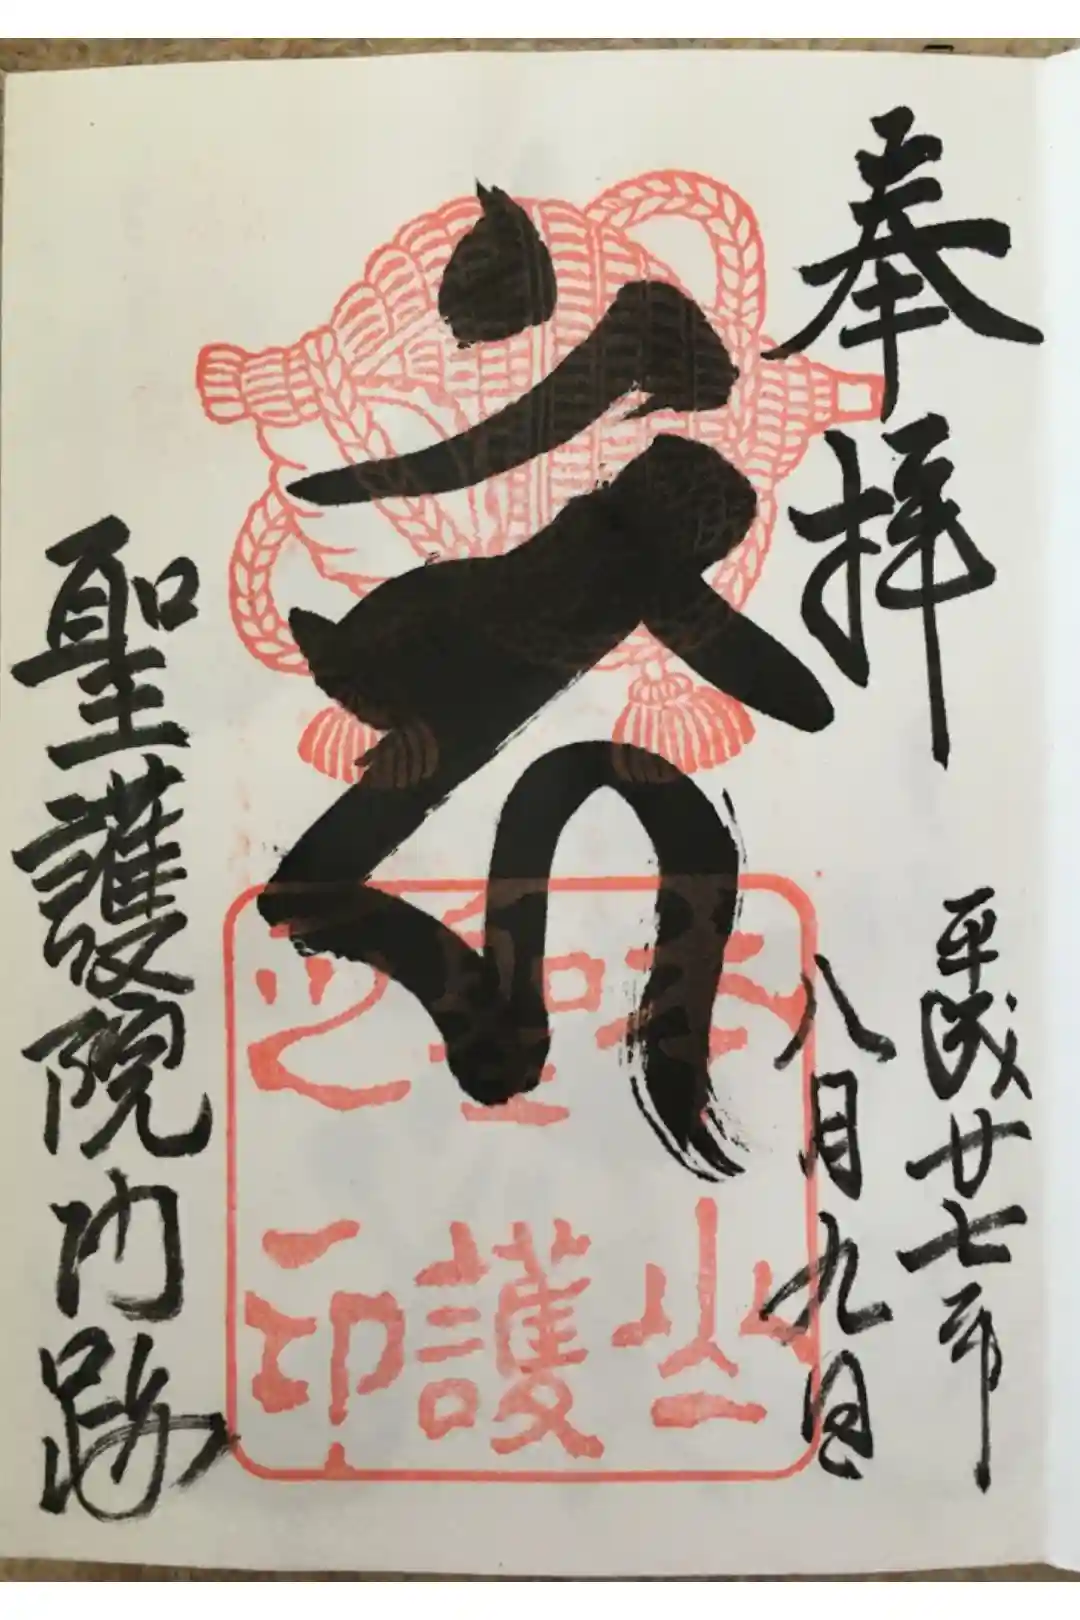 奉拝
平成廿七年
八月九日
聖護
之印
聖護院門跡